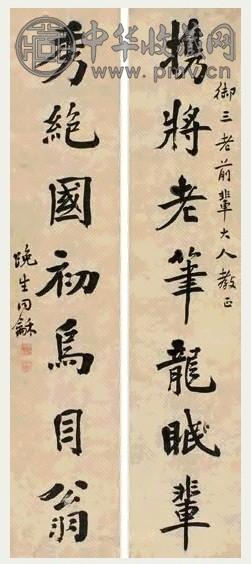 中华收藏网
www.pmv.cn
御三老前輩大人教正
携將老筆龍眠輩
秀絕國初烏目翁
晚生同龢